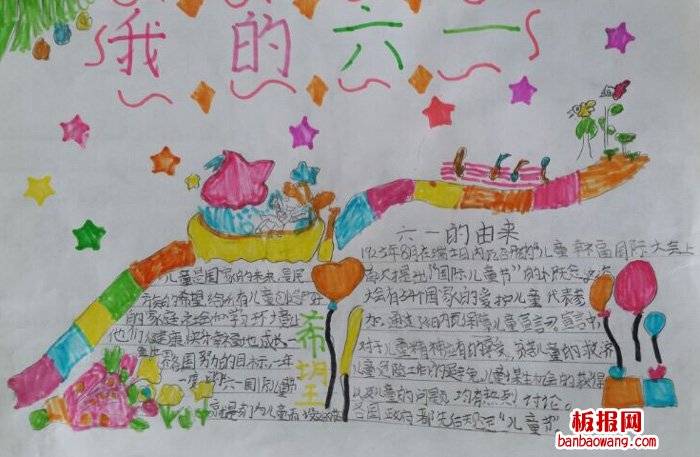 我的六一
儿童是国家的未来,是民
族的希望给所有儿童创造良好
的家庭社会和学习环境让
他们健康快乐幸福地成长一
直是各国努力的目标,一年
一度的六一国际儿童节
就是专门为儿童
希望
六一的由来
1925年8月在瑞士日内瓦召开的"儿童幸福国际大会上
首次提出"国际儿童节"的
大会有54个国家的爱护儿童代表参
加。通过《日内瓦保障儿童宣言》。宣言
对于儿童精神上有的享受、儿童的救济
儿童危险工作的避免、儿童谋生机会的获得
以及儿童的问题 均有热烈讨论。
各国政府都先后规定"儿童节"
板报网
banbaowang.com